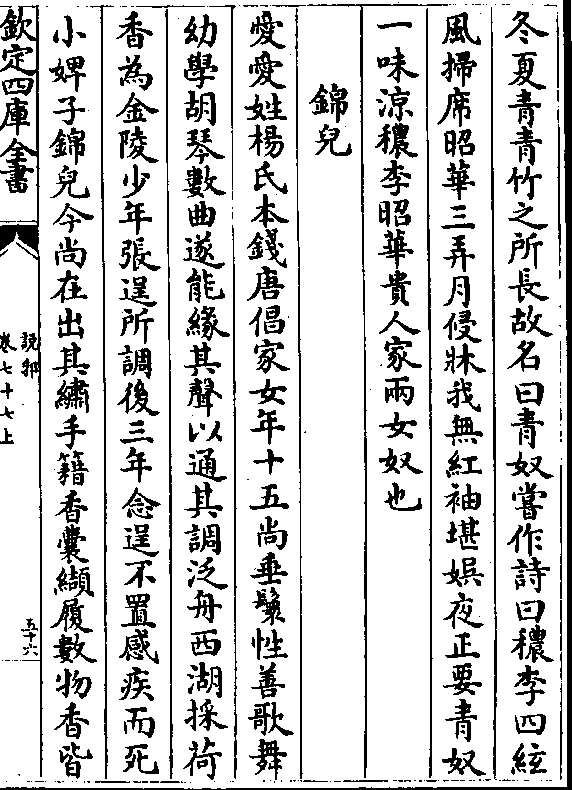 冬夏青青竹之所長故名曰青奴嘗作詩曰穠李四絃
風掃席昭華三弄月侵牀我無紅袖堪娯夜正要青奴
一味涼穠李昭華貴人家兩女奴也
錦兒
愛愛姓楊氏本錢唐倡家女年十五尚垂鬟性善歌舞
幼學胡琴數曲遂能緣其聲以通其調泛舟西湖採荷
香為金陵少年張逞所調後三年念逞不置感疾而死
小婢子錦兒今尚在出其繡手籍香囊纈履數物香皆
欽定四庫全書
說郛
卷七十七上
五十六